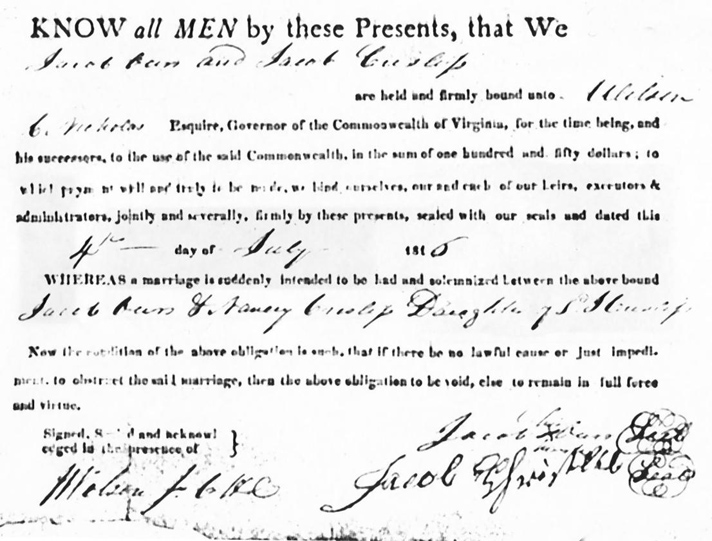 KNOW all MEN by these Presents, that We
Jacob and Jacob Cuslip
are held and firmly bound unto Wilson
C. Nicholas Esquire, Governor of the Commonwealth of Virginia, for the time being, and
his successors, to the use of the said Commonwealth, in the sum of one hundred and fifty dollars; to
which paym nt well and truly to be made, we bind ourselves, our and each of our heirs, executors &
administrators, jointly and severally, firmly by these presents, sealed with our seals and dated this
4th day of July 1816
WHEREAS a marriage is suddenly intended to be had and solemnized between the above bound
Jacob & Nancy Cuslip Daughter of
Now the condition of the above obligation is such, that if there be no lawful cause or just impedi-
ment, to obstruct the said marriage, then the above obligation to be void, else to remain in full force
and virtue.
Signed, S d and acknowl
edged in the presence of }
Jacob Seal
Jacob Seal